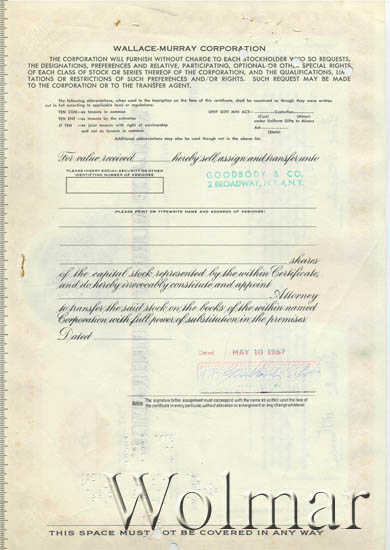 WALLACE-MURRAY CORPORATION
THE CORPORATION WILL FURNISH WITHOUT CHARGE TO EACH STOCKHOLDER WHO SO REQUESTS,
THE DESIGNATIONS, PREFERENCES AND RELATIVE, PARTICIPATING, OPTIONAL OR OTHER SPECIAL RIGHTS
OF EACH CLASS OF STOCK OR SERIES THEREOF OF THE CORPORATION, AND THE QUALIFICATIONS, LIMI-
TATIONS OR RESTRICTIONS OF SUCH PREFERENCES AND/OR RIGHTS. SUCH REQUEST MAY BE MADE
TO THE CORPORATION OR TO THE TRANSFER AGENT.
The following abbreviations, when used in the inscription on the face of this certificate, shall be construed as though they were written
out in full according to applicable laws or regulations:
TEN COM—as tenants in common UNIF GIFT MIN ACT— Custodian
TEN ENT —as tenants by the entireties (Cust) (Minor)
JT TEN —as joint tenants with right of survivorship under Uniform Gifts to Minors
and not as tenants in common Act
(State)
Additional abbreviations may also be used though not in the above list.
For value received hereby sell, assign and transfer unto
PLEASE INSERT SOCIAL SECURITY OR OTHER
IDENTIFYING NUMBER OF ASSIGNEE
GOODBODY & CO.
2 BROADWAY, N.Y. 4, N.Y.
(PLEASE PRINT OR TYPEWRITE NAME AND ADDRESS OF ASSIGNEE)
shares
of the capital stock represented by the within Certificate,
and do hereby irrevocably constitute and appoint
Attorney
to transfer the said stock on the books of the within named
Corporation with full power of substitution in the premises.
Dated
Dated MAY 10 1967
Notice: The signature to this assignment must correspond with the name as written upon the face of
the certificate in every particular, without alteration or enlargement or any change whatever.
Wolmar
THIS SPACE MUST NOT BE COVERED IN ANY WAY